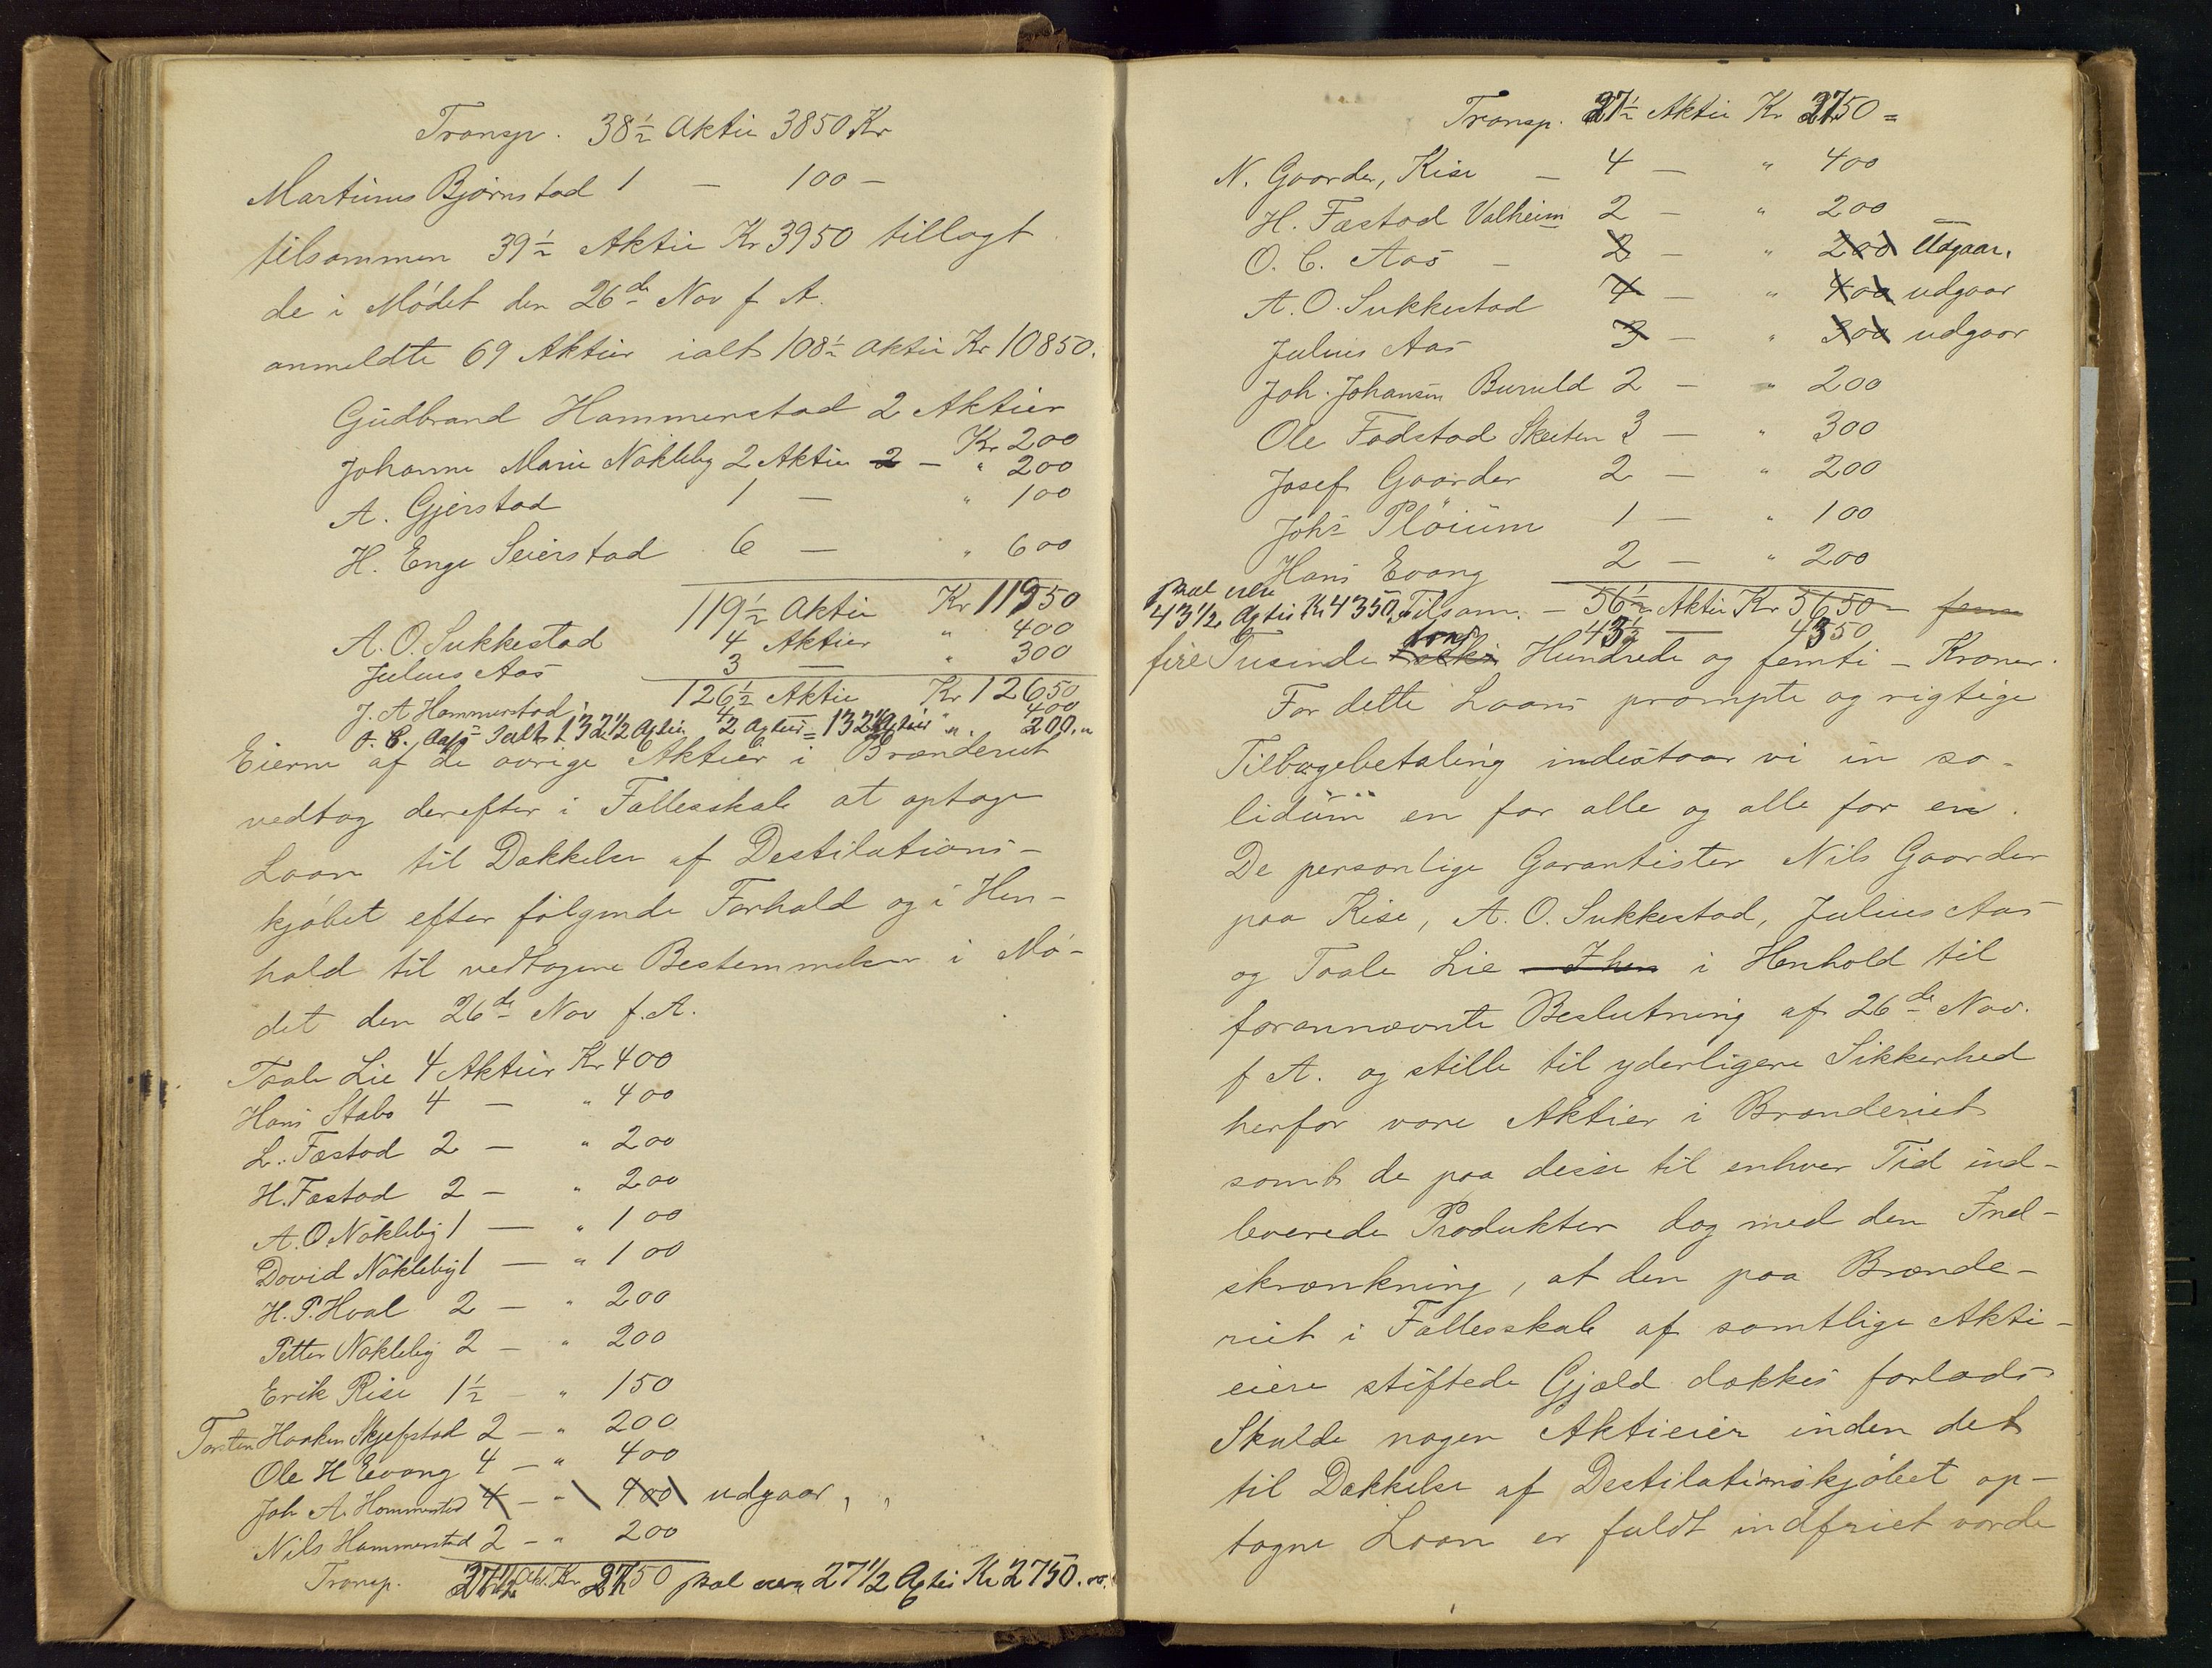 Transp. 38½ Aktie 3850 Kr
Martinus Bjørnstad 1 — 100 —
tilsammen 39½ Aktie Kr 3950 tillagt
de i Mødet den 26de Nov f. A.
anmeldte 69 Aktier ialt 108½ Aktie Kr 10850.
Gudbrand Hammerstad 2 Aktier
Kr 200
Johanne Marie Nøkleby 2 Aktie 2 — " 200
A. Gjerstad 1 — " 100
H. Enge Seierstad 6 — " 600
119½ Aktie Kr 11950
A. O. Sukkestad 4 Aktier " 400
Julius Aas 3 — " 300
126½ Aktie Kr 12650
J. A Hammerstad 4 — " 400
O. C. Aas Ialt 132½ Aktie 2 Aktie = 132½ Aktier " 200. "
Eierne af de øvrige Aktier i Brænderiet
vedtog derefter i Fællesskab at optage
Laan til Dækkelse af Destilations-
kjøbet efter følgende Forhold og i Hen-
hold til vedtagne Bestemmelser i Mø-
det den 26de Nov f. A.
Taale Lie 4 Aktier Kr 400
Hans Stabo 4 — " 400
L. Fæstad 2 — " 200
H. Fæstad 2 — " 200
A. O. Nøkleby 1 — " 100
David Nøkleby 1 — " 100
H. P. Hval 2 — " 200
Petter Nøkleby 2 — " 200
Erik Rise 1½ — " 150
Torsten Haaken Skjefstad 2 — " 200
Ole H Evang 4 — " 400
Joh A. Hammerstad 4 — " 400 udgaar "
Nils Hammerstad 2 — " 200
Transp. 27½ Akt. Kr 2750 skal være 27½ Aktie Kr 2750.
Transp. 27½ Aktie Kr 2750 =
N. Gaarder, Kise — 4 — " 400
H. Fæstad Valheim 2 — " 200
O. C. Aas — 2 — " 200 Udgaar.
A. O. Sukkestad 4 — " 400 udgaar
Julius Aas 3 — " 300 udgaar
Joh. Johansen Buruld 2 — " 200
Ole Fodstad Skeiten 3 — " 300
Josef Gaarder 2 — " 200
Johs Pløium 1 — " 100
Hans Evang 2 — " 200
skal være
43½ Aktie Kr 4350 Tilsam. — 56½ Aktie Kr 5650 — fem
43½ — 4350
tre
fire Tusinde seks Hundrede og femti — Kroner.
For dette Laans prompte og rigtige
Tilbagebetaling indestaar vi in so-
lidum en for alle og alle for en.
De personlige Garantister Nils Gaarder
paa Kise, A. O. Sukkestad, Julius Aas
og Taale Lie I hen i Henhold til
forannævnte Beslutning af 26de Nov.
f A. og stille til yderligere Sikkerhed
herfor vore Aktier i Brænderiet
samt de paa disse til enhver Tid ind-
leverede Produkter dog med den Ind-
skrænkning, at den paa Brænde-
riet i Fællesskab af samtlige Akti-
eiere stiftede Gjæld dækkes forlods
Skulde nogen Aktieeier inden det
til Dækkelse af Destilationskjøbet op-
tagne Laan er fuldt indfriet vorde